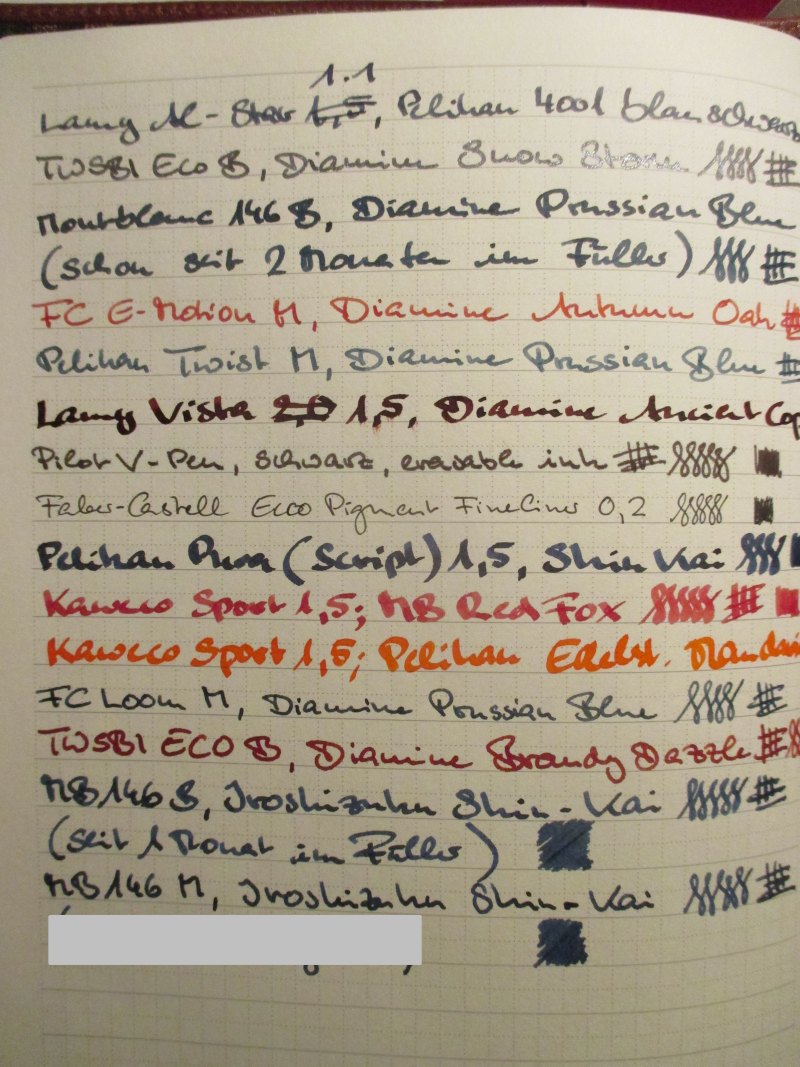 1.1
Lamy Al-Star 1,5, Pelikan 4001 blauschwarz
TWSBI Eco B, Diamine Snow Storm
Montblanc 146 B, Diamine Prussian Blue
(schon seit 2 Monaten im Füller)
FC E-Motion M, Diamine Autumn Oak
Pelikan Twist M, Diamine Prussian Blue
Lamy Vista 2,0 1,5, Diamine Ancient Cop
Pilot V-Pen, schwarz, erasable ink
Faber-Castell Ecco Pigment Fineliner 0,2
Pelikan Pura (Script) 1,5, Shin Kai
Kaweco Sport 1,5; MB Red Fox
Kaweco Sport 1,5; Pelikan Edelst. Mandari
FC Loom M, Diamine Prussian Blue
TWSBI ECO B, Diamine Brandy Dazzle
MB 146 B, Iroshizuku Shin-Kai
(seit 1 Monat im Füller)
MB 146 M, Iroshizuku Shin-Kai